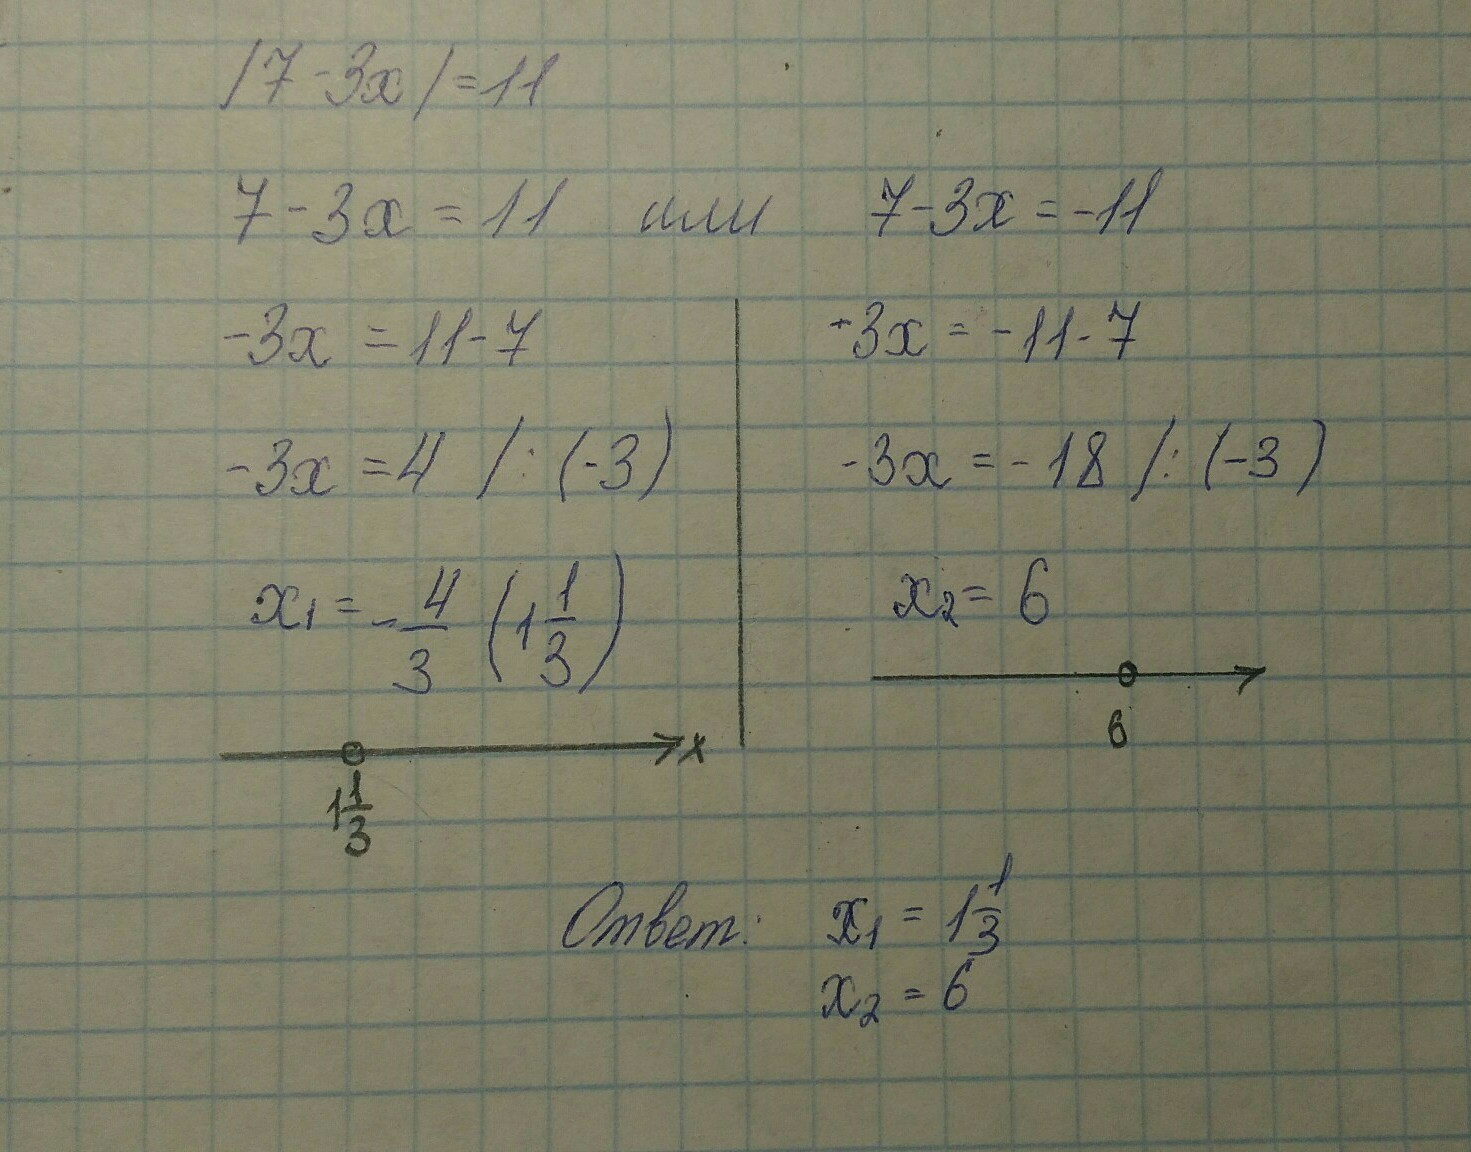 |7-3x|=11
7-3x=11 или 7-3x=-11
-3x=11-7
-3x=4 /:(-3)
x₁=-4/3 (1 1/3)
x
1 1/3
-3x=-11-7
-3x=-18 /:(-3)
x₂=6
6
Ответ: x₁=1 1/3
x₂=6